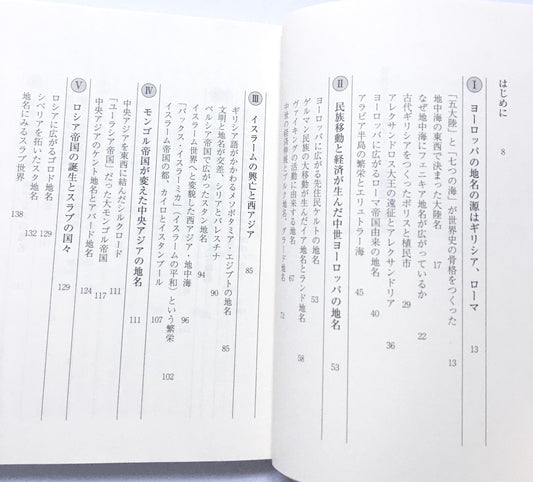 はじめに 8
Ⅰ ヨーロッパの地名の源はギリシア、ローマ 13
「五大陸」と「七つの海」が世界史の骨格をつくった 13
地中海の東西で決まった大陸名 17
なぜ地中海にフェニキア地名が広がっているか 22
古代ギリシアをつくったポリスと植民市 29
アレクサンドロス大王の遠征とアレクサンドリア 36
ヨーロッパに広がるローマ帝国由来の地名 40
アラビア半島の繁栄とエリュトラー海 45
Ⅱ 民族移動と経済が生んだ中世ヨーロッパの地名 53
ヨーロッパに広がる先住民ケルトの地名 53
ゲルマン民族の大移動が生んだイア地名とランド地名 58
ヴァイキングの活動に由来する地名 67
中世の経済伸展とブルク地名、グラード地名 72
Ⅲ イスラームの興亡と西アジア 85
ギリシア語がかかわるメソポタミア・エジプトの地名 85
文明と地名が交差、シリアとパレスチナ 90
ペルシア帝国で広がったスタン地名 94
イスラーム世界へと変貌した西アジア・地中海 96
「パックス・イスラーミカ」（イスラームの平和）という繁栄 102
イスラーム帝国の都、カイロとイスタンブール 107
Ⅳ モンゴル帝国が変えた中央アジアの地名 111
中央アジアを東西に結んだシルクロード 111
「ユーラシア帝国」だった大モンゴル 117
中央アジアのケント地名とアバード地名 124
Ⅴ ロシア帝国の誕生とスラブの国々 129
ロシアに広がるゴロド地名 129
シベリアを拓いたスク地名 132
地名にみるスラブ世界 138